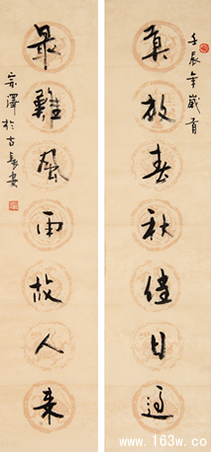 壬辰年歲首
莫放春秋佳日過
最難風雨故人來
宗澤於古長安
www.163w.com